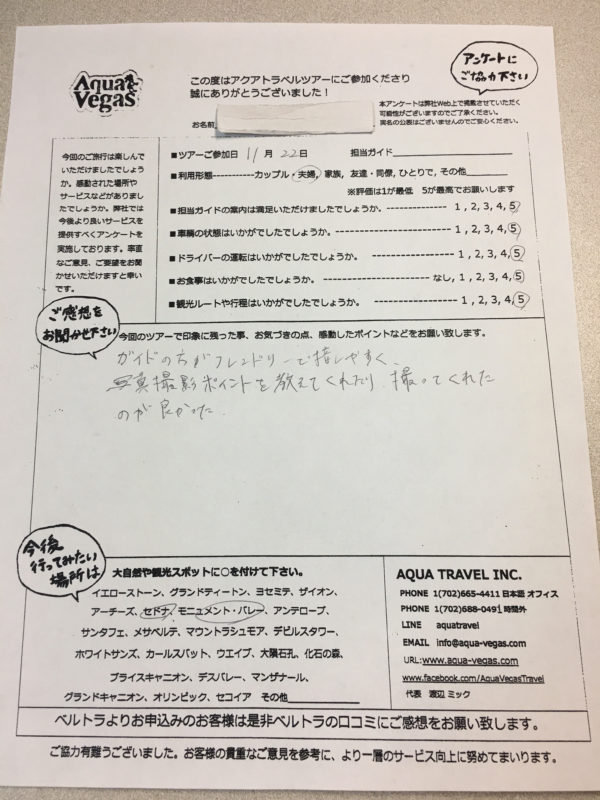 Aqua
Vegas
この度はアクアトラベルツアーにご参加くださり
誠にありがとうございました！
アンケートに
ご協力下さい
本アンケートは弊社Web上で掲載させていただく
可能性がございますのでご了承ください。
実名の公表はございませんのでご安心ください。
お名前
今回のご旅行は楽しんで
いただけましたでしょう
か。感動された場所や
サービスなどがありまし
たでしょうか。弊社では
今後より良いサービスを
提供すべくアンケートを
実施しております。率直
なご意見、ご要望をお聞
かせいただけますと幸い
です。
■ツアーご参加日 11 月 22 日 担当ガイド
■利用形態-----------カップル・夫婦, 家族, 友達・同僚, ひとりで, その他
※評価は1が最低 5が最高でお願いします
■担当ガイドの案内は満足いただけましたでしょうか。--------------- 1, 2, 3, 4, 5
■車輌の状態はいかがでしたでしょうか。------------------------- 1, 2, 3, 4, 5
■ドライバーの運転はいかがでしたでしょうか。-------------------- 1, 2, 3, 4, 5
■お食事はいかがでしたでしょうか。-------------------------- なし, 1, 2, 3, 4, 5
■観光ルートや行程はいかがでしたでしょうか。-------------------- 1, 2, 3, 4, 5
ご感想を
お聞かせ下さい
今回のツアーで印象に残った事、お気づきの点、感動したポイントなどをお願い致します。
ガイドの方がフレンドリーで接しやすく、
写真撮影ポイントを教えてくれたり、撮ってくれた
のが良かった.
今後
行ってみたい
場所は
大自然や観光スポットに○を付けて下さい。
イエローストーン、グランドティートン、ヨセミテ、ザイオン、
アーチーズ、セドナ、モニュメント・バレー、アンテロープ、
サンタフェ、メサベルデ、マウントラシュモア、デビルスタワー、
ホワイトサンズ、カールスバット、ウエイブ、大隕石孔、化石の森、
ブライスキャニオン、デスバレー、マンザナール、
グランドキャニオン、オリンピック、セコイア その他
AQUA TRAVEL INC.
PHONE 1(702)665-4411 日本語 オフィス
PHONE 1(702)688-0491 時間外
LINE aquatravel
EMAIL info@aqua-vegas.com
URL:www.aqua-vegas.com
www.facebook.com/AquaVegasTravel
代表 渡辺 ミック
ベルトラよりお申込みのお客様は是非ベルトラの口コミにご感想をお願い致します。
ご協力有難うございました。お客様の貴重なご意見を参考に、より一層のサービス向上に努めてまいります。